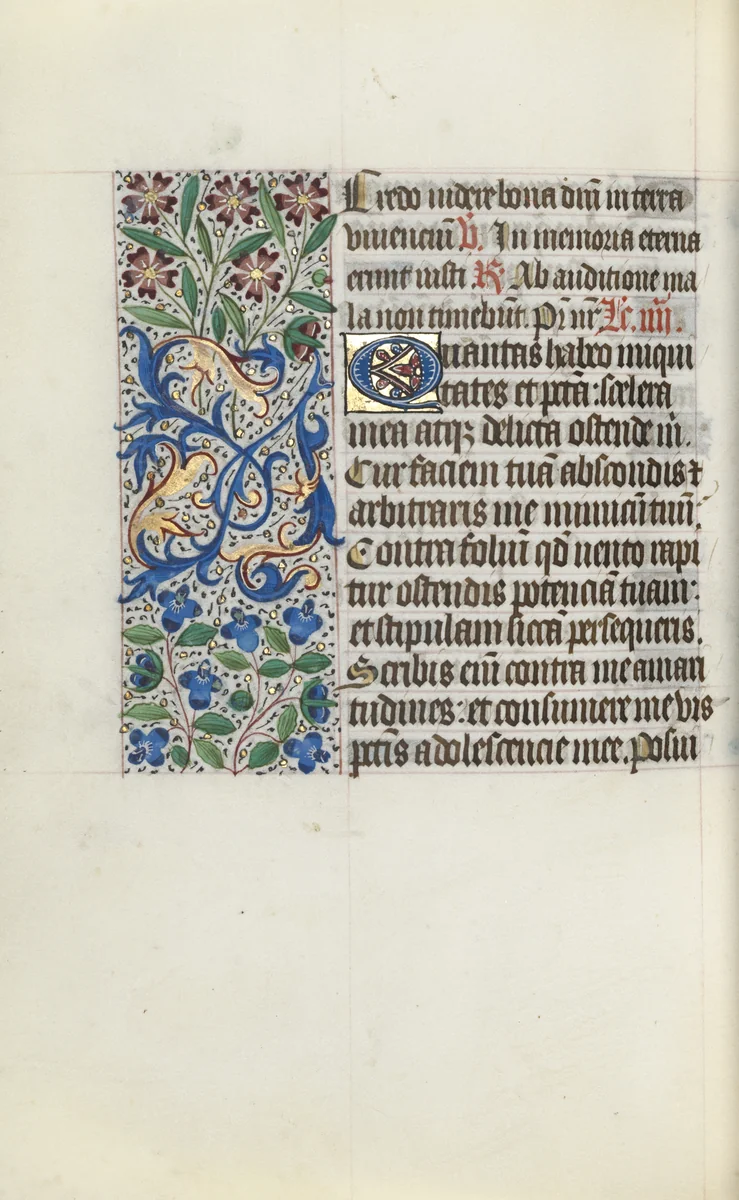 Credo videre bona dñi in terra
viuenciũ V̄. In memoria eterna
erunt iusti R̄ Ab auditione ma
la non timebũt. Pr̃ nr̃ Lc̄. iiij.
Quantas habeo iniqui
tates et pctã: scelera
mea atqꝫ delicta ostende m̃.
Cur faciem tuã abscondis ⁊
arbitraris me inimicũ tuũ:
Contra foliũ qd̃ uento rapi
tur ostendis potenciã tuam:
et stipulam siccã persequeris.
Scribis eñi contra me amari
tudines: et consumere me vis
pctĩs adolescencie mee. Posui